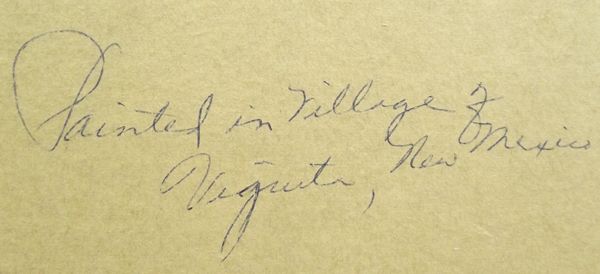 Painted in Village of
Veguita, New Mexico